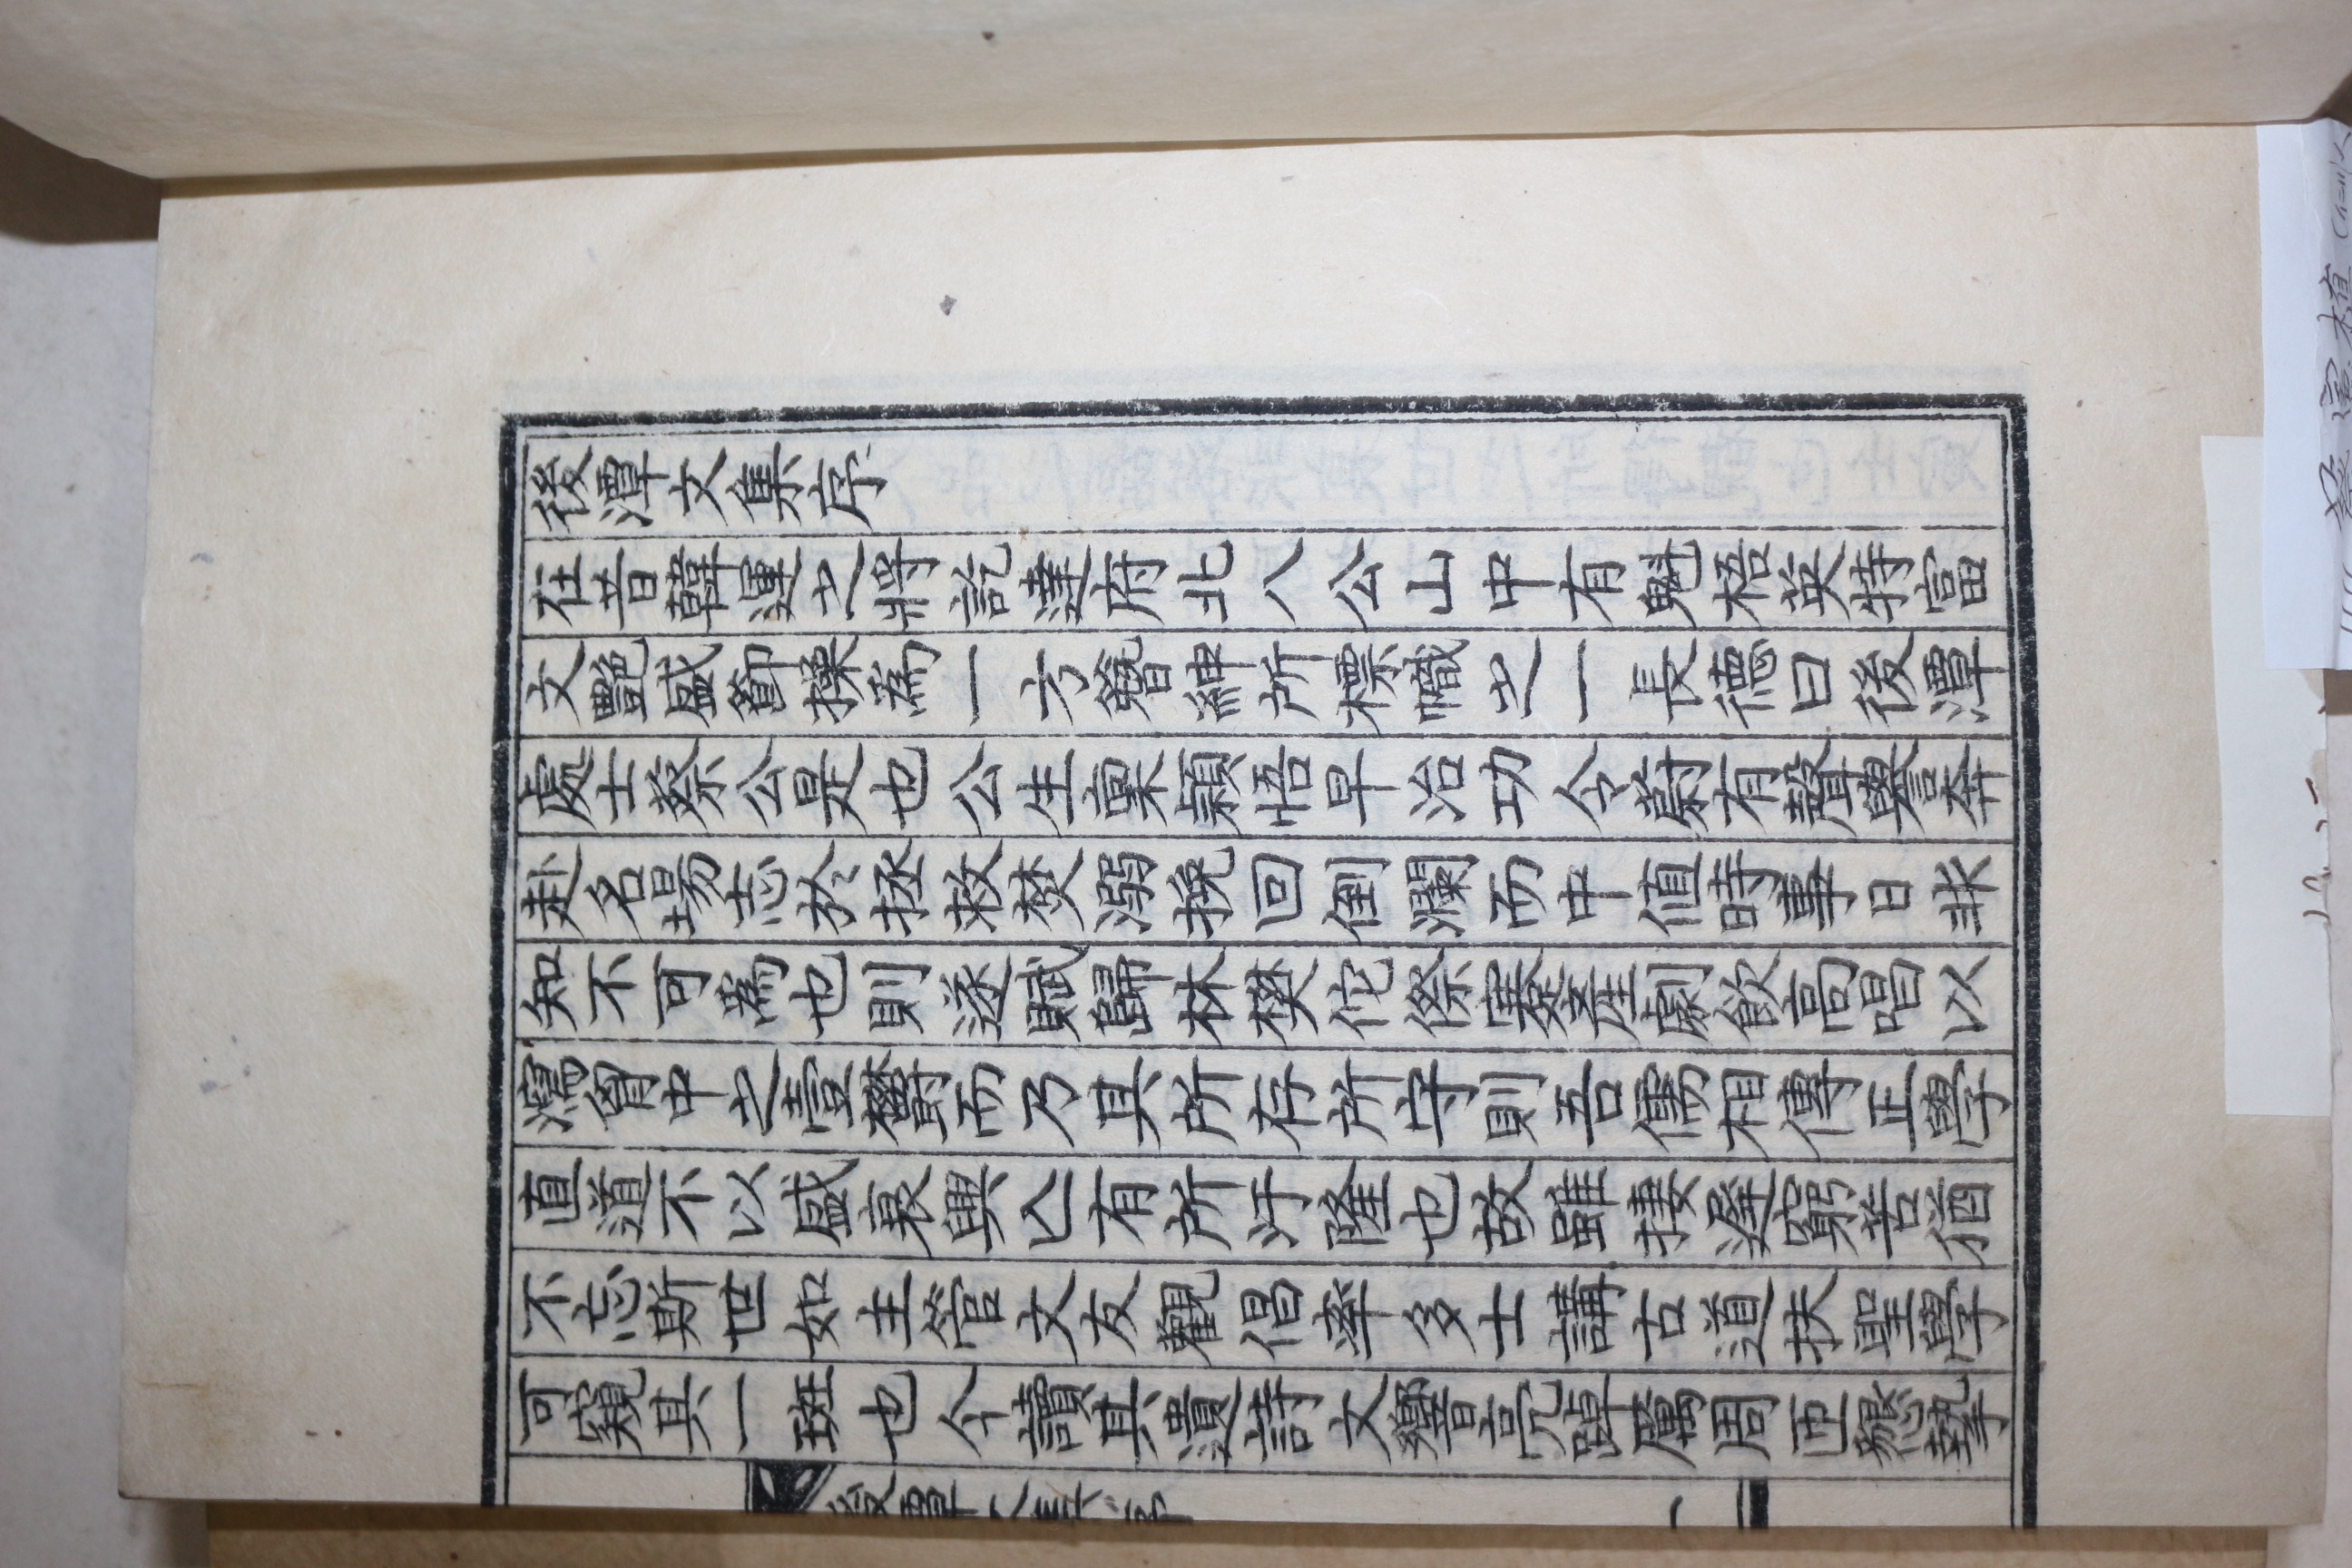 後潭文集序
在昔韓運之將訖達府北八公山中有魁梧英特富
文艷盛節操爲一方簪紳所標幟之一長德曰後潭
處士蔡公是也公生稟穎悟早治功令蔚有聲譽奔
赴名場志於拯救焚溺挽回倒瀾而中値時事日非
知不可爲也則遂賦歸林樊侘傺蹇產劇飮高唱以
瀉胷中之壹欝而乃其所存所守則吾儒相傳正學
直道不以盛衰興亾有所汙隆也故雖捿遲窮苦猶
不忘斯世如主管文友觀倡率多士講古道扶聖學
可窺其一斑也今讀其遺詩文響亮踔厲周匝懇摯
後潭文集序
一